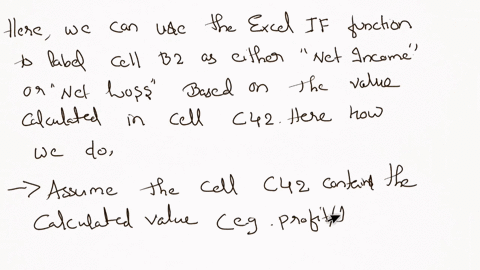 Here, we can use the Excel IF function
to label cell B2 as either "Net Income"
or "Net Loss" Based on the value
Calculated in cell C42. Here how
we do,
-> Assume the cell C42 contains the
Calculated value (eg. profit